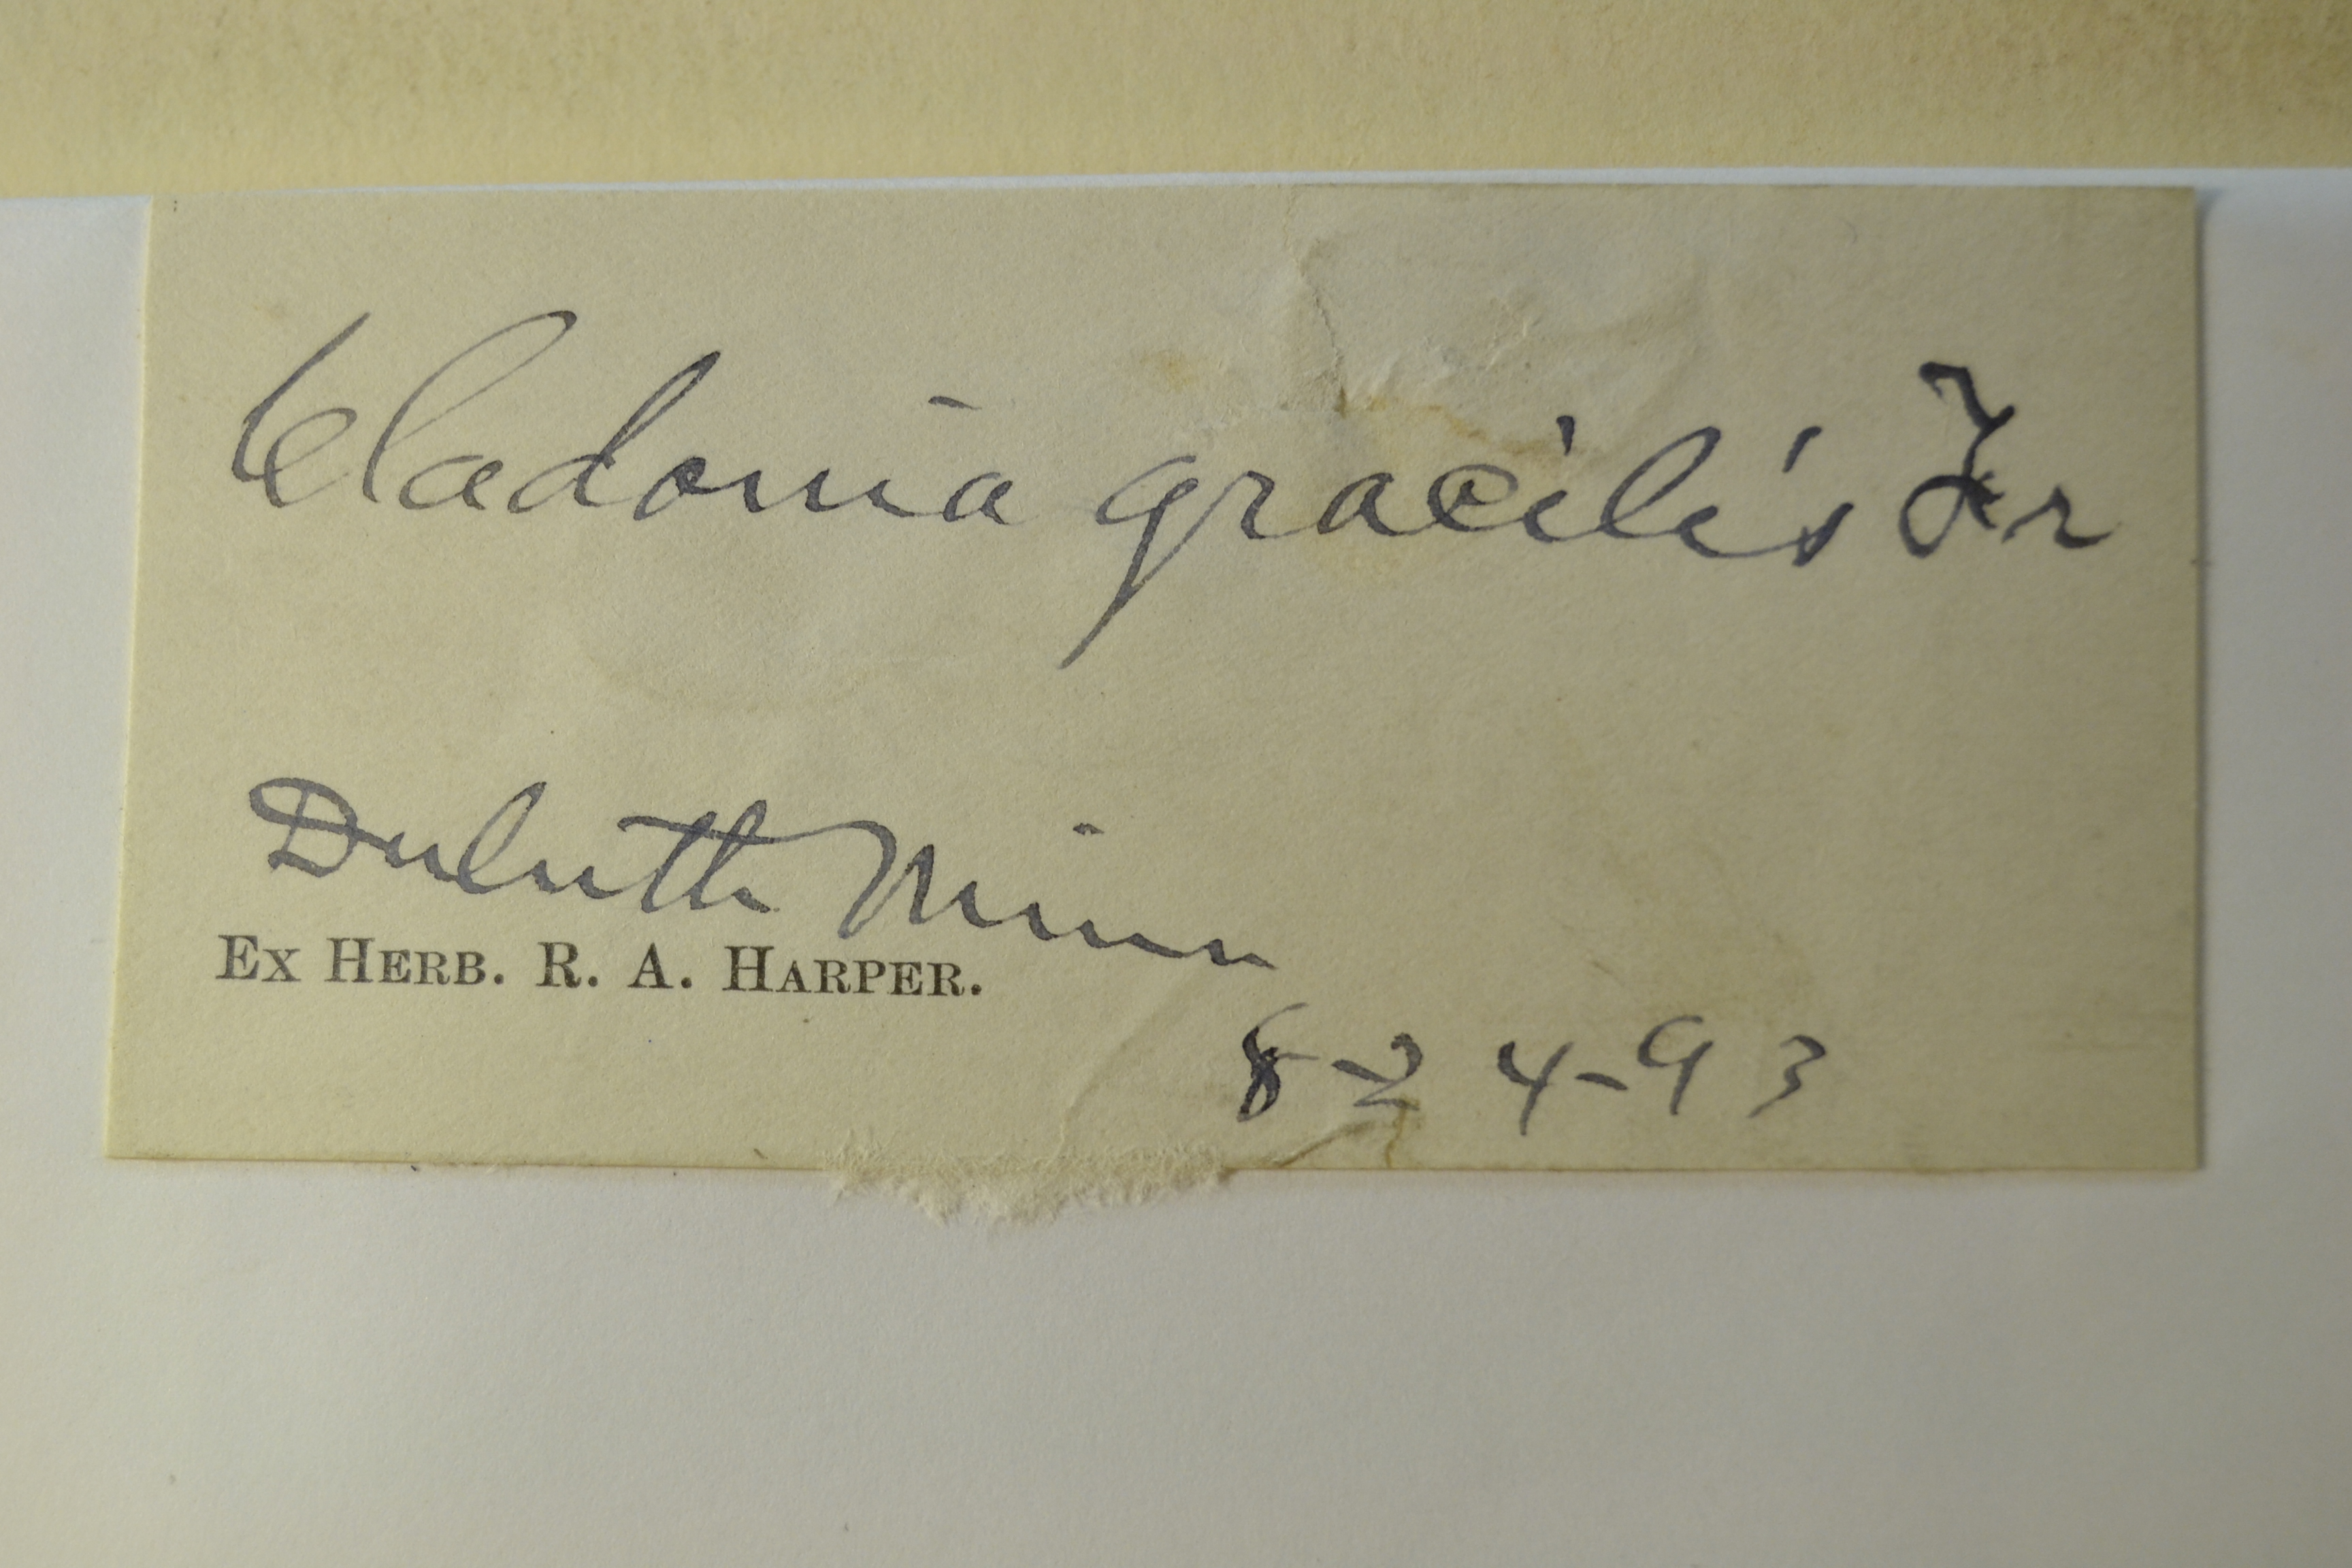 Cladonia gracilis Fr
Duluth Minn
Ex Herb. R. A. Harper.
8-24-93